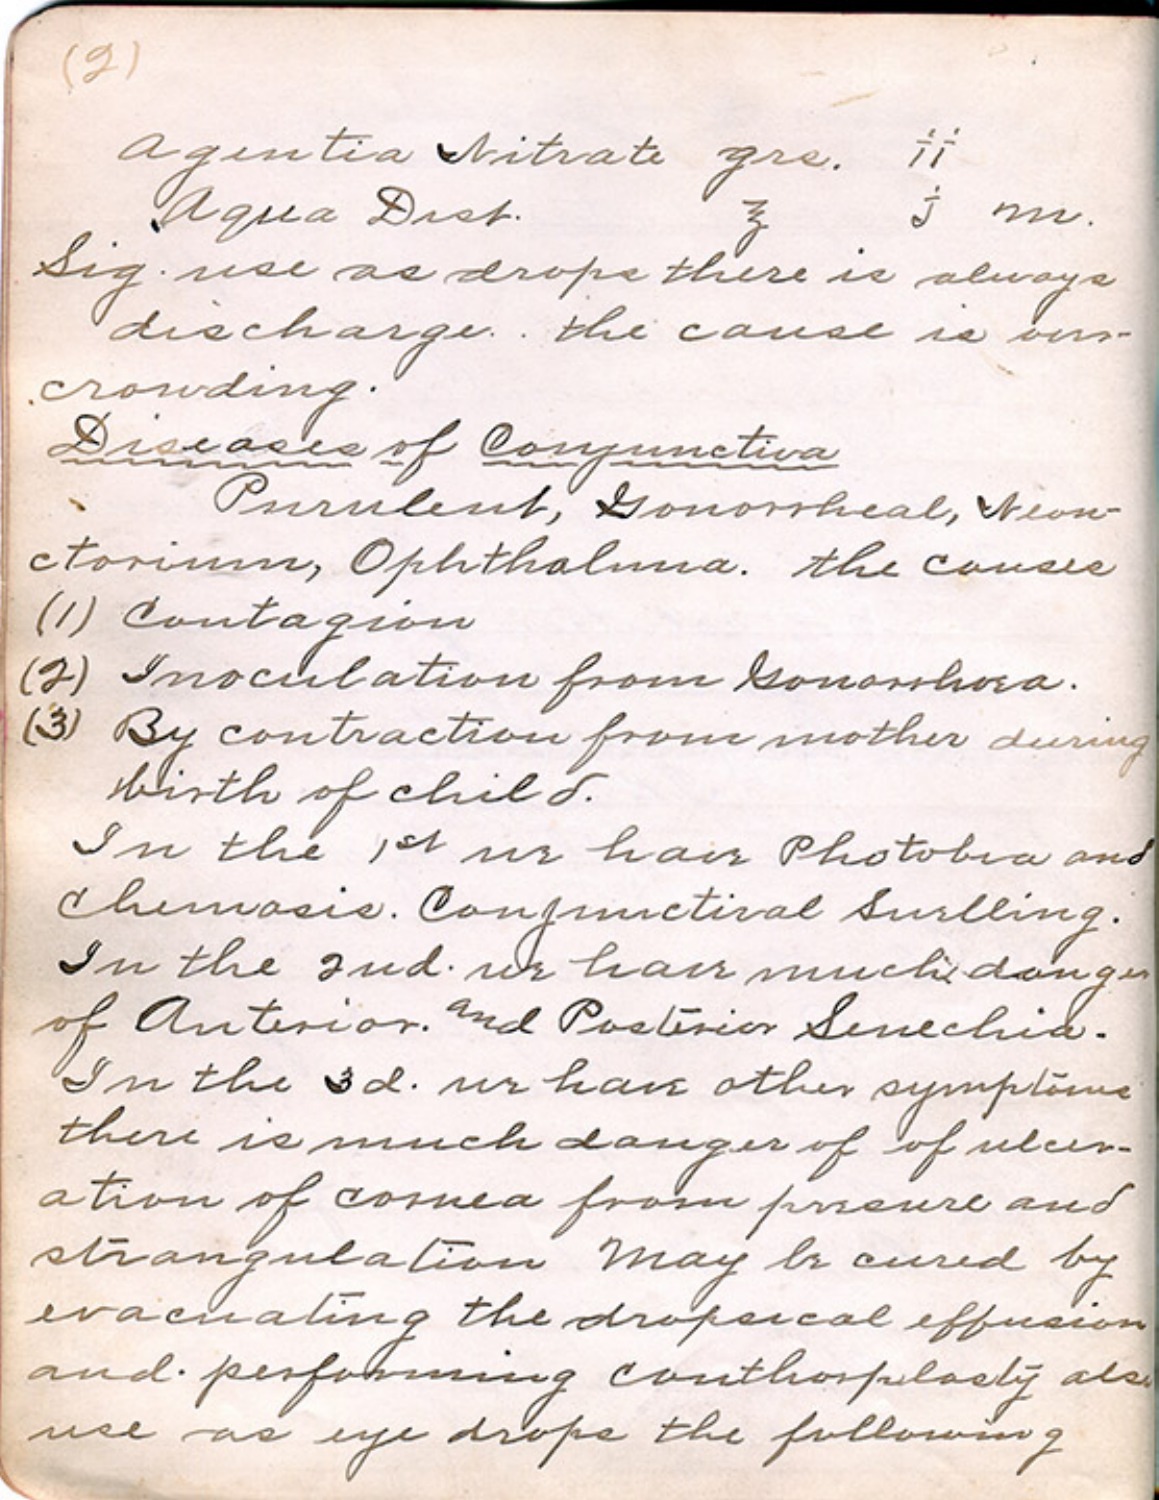 (2)
Agentia Nitrate grs. ii
Aqua Dist. ℥ j m.
Sig. use as drops there is always
discharge.. the cause is over-
crowding.
Diseases of Conjunctiva
Purulent, Gonorrheal, Neon-
ctorium, Ophthalma. the causes
(1) Contagion
(2) Inoculation from Gonorrhoea.
(3) By contraction from mother during
birth of child.
In the 1st we have Photobia and
Chemosis. Conjunctival Swelling.
In the 2nd. we have much danger
of Anterior. and Posterior Senechia.
In the 3d. we have other symptoms
there is much danger of of ulcer-
ation of cornea from presure and
strangulation May be cured by
evacuating the dropsical effusion
and. performing canthorplasty also
use as eye drops the following